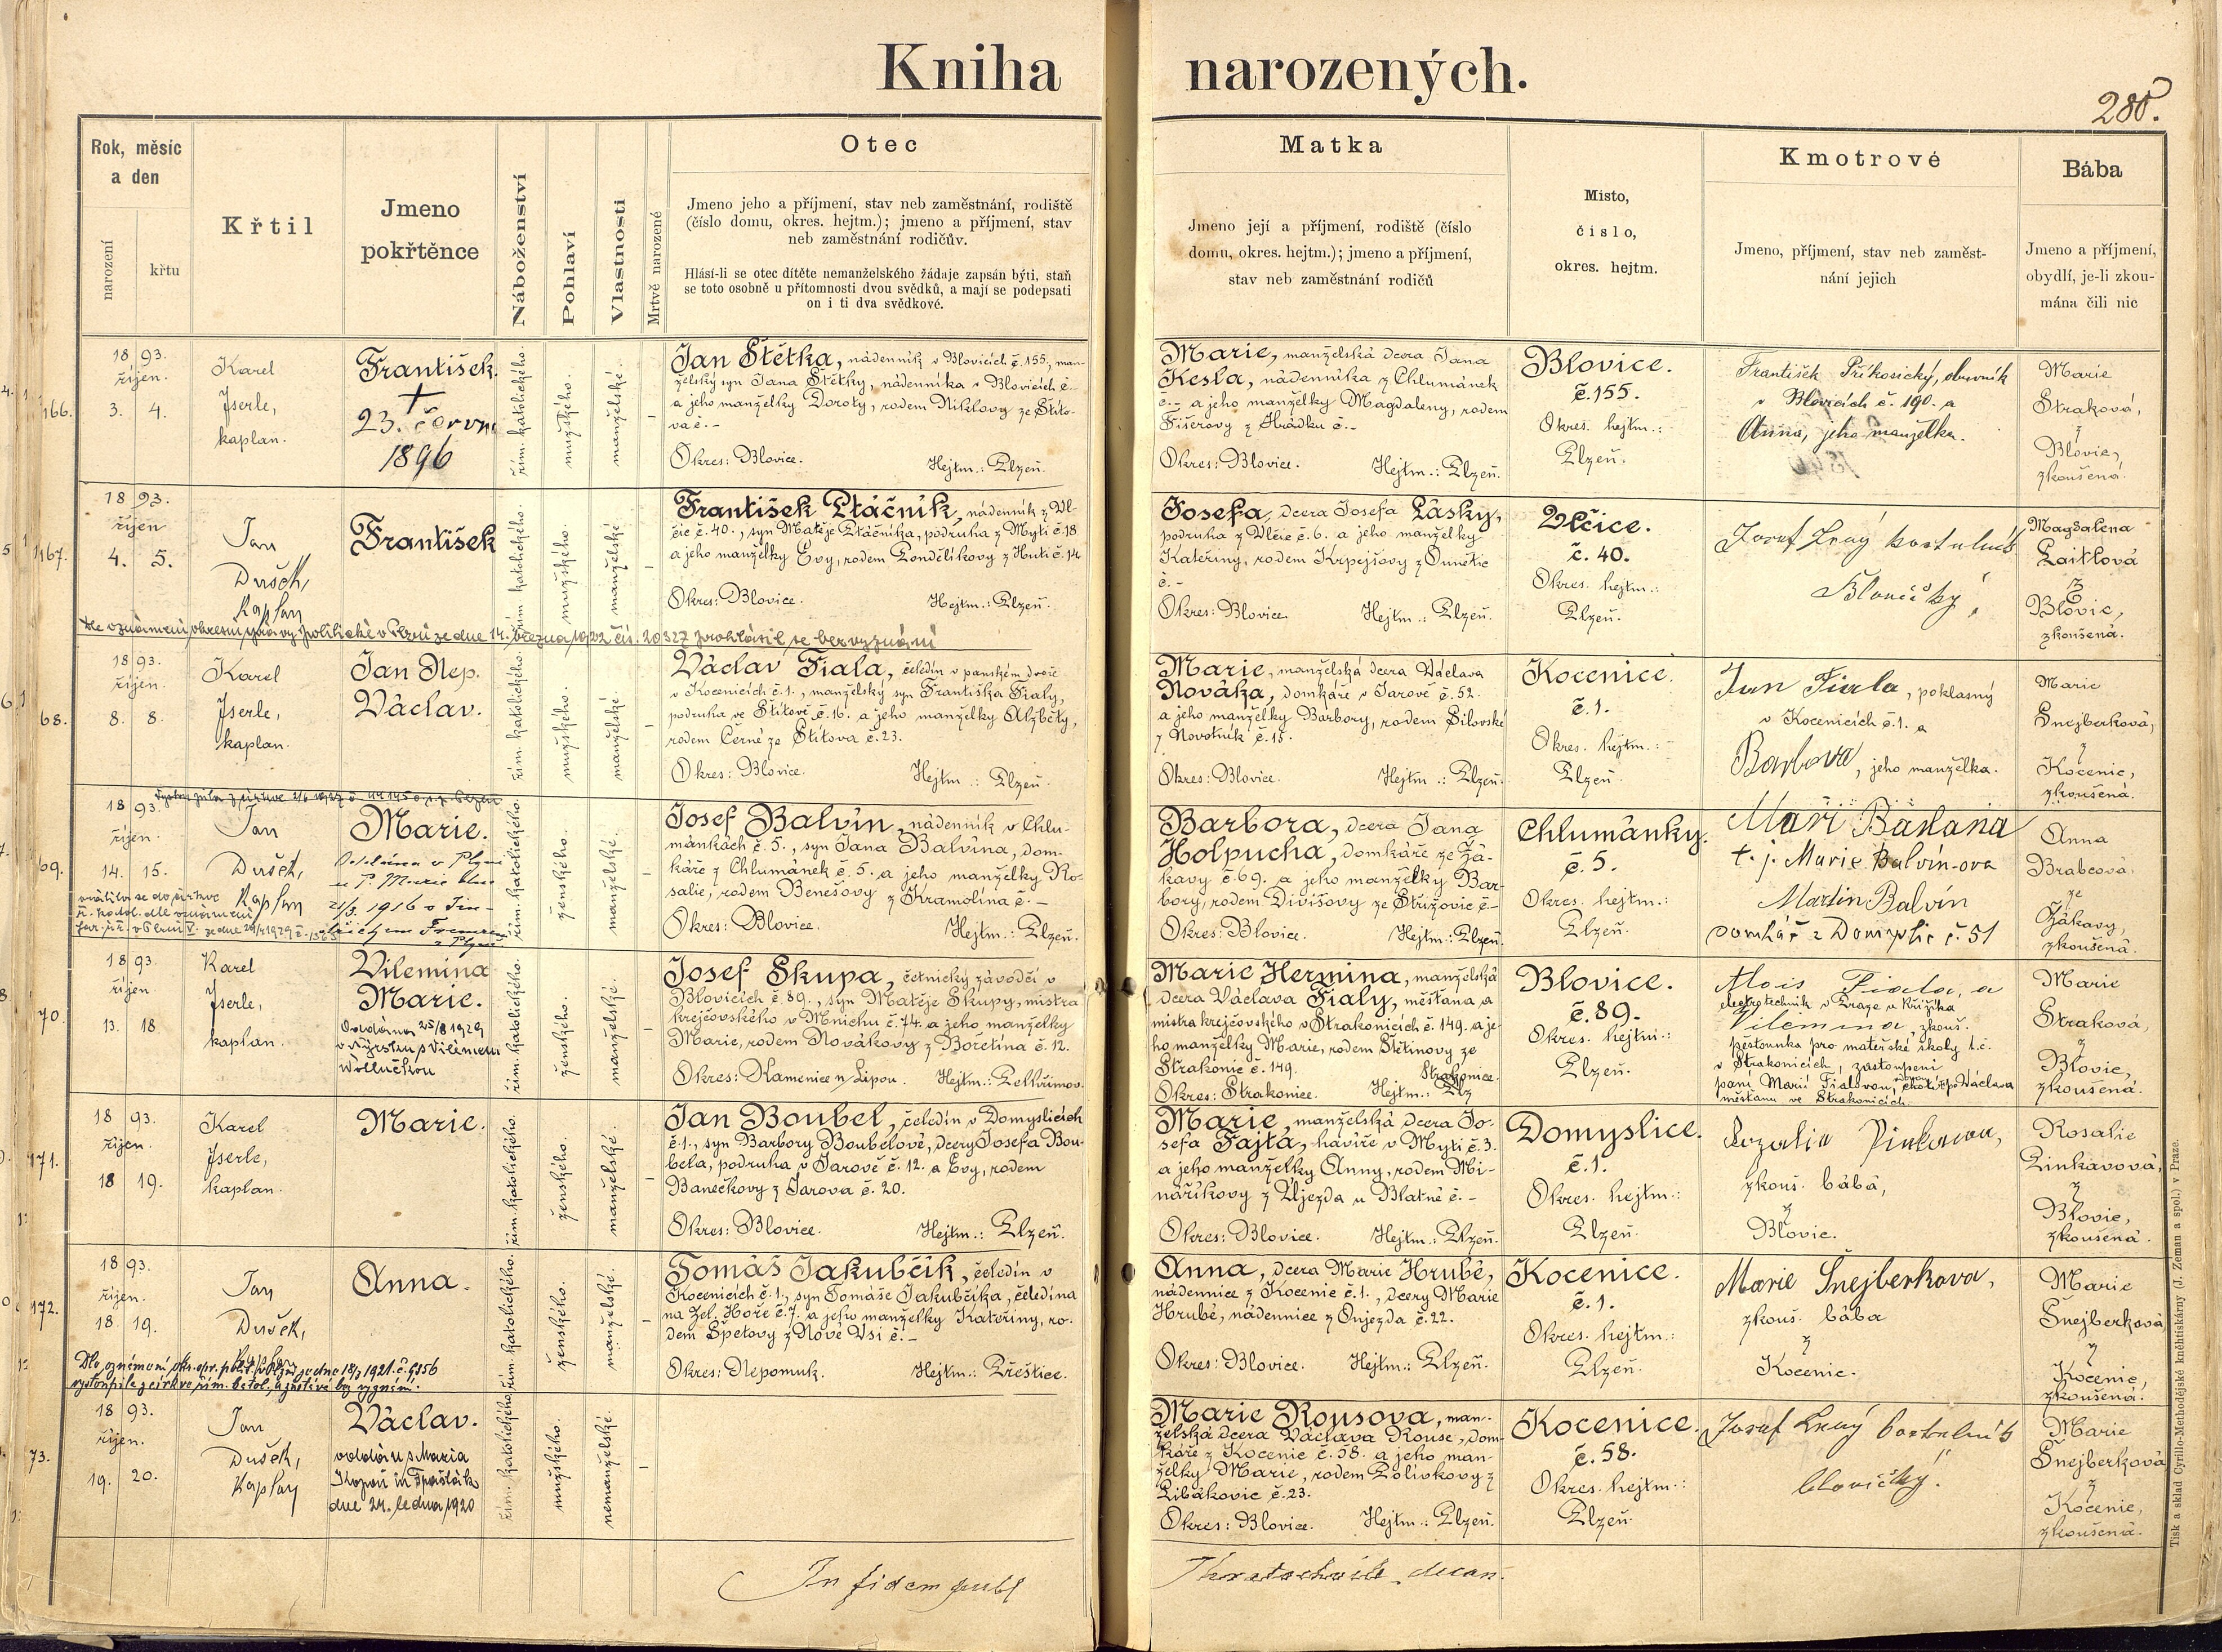 Kniha narozených.
285.
Rok, měsíc
a den
narození
křtu
Křtil
Jmeno
pokřtěnce
Náboženství
Pohlaví
Vlastnosti
Mrtvě narozené
Otec
Jmeno jeho a příjmení, stav neb zaměstnání, rodiště
(číslo domu, okres. hejtm.); jmeno a příjmení, stav
neb zaměstnání rodičův.
Hlásí-li se otec dítěte nemanželského žádaje zapsán býti, staň
se toto osobně u přítomnosti dvou svědků, a mají se podepsati
on i ti dva svědkové.
Matka
Jmeno její a příjmení, rodiště (číslo
domu, okres. hejtm.); jmeno a příjmení,
stav neb zaměstnání rodičů
Misto,
číslo,
okres. hejtm.
Kmotrové
Jmeno, příjmení, stav neb zaměst-
nání jejich
Bába
Jmeno a příjmení,
obydlí, je-li zkou-
mána čili nic
166.
18 93.
říjen.
3. 4.
Karel
Jserle,
kaplan.
František.
+
23. června
1896
řím. katolického.
mužského.
manželské.
–
Jan Štětka, nádenník v Blovicích č. 155., man-
želský syn Jana Štětky, nádenníka v Blovicích č.–
a jeho manželky Doroty, rodem Niklovy ze Štíto-
va č. –
Okres: Blovice. Hejtm.: Plzeň.
Marie, manželská dcera Jana
Kesla, nádenníka z Chlumánek
č. – a jeho manželky Magdaleny, rodem
Fišerovy z Hrádku č. –
Okres: Blovice. Hejtm.: Plzeň.
Blovice.
č. 155.
Okres. hejtm.:
Plzeň.
František Příkosický, obuvník
v Blovicích č. 190. a
Anna, jeho manželka.
Marie
Straková,
z
Blovic,
zkoušená.
167.
18 93.
říjen
4. 5.
Jan
Dušek,
Kaplan
František
řím. katolického.
mužského.
manželské
–
František Ptáčník, nádenník z Vl-
čic č. 40., syn Matěje Ptáčníka, podruha z Mýti č. 18
a jeho manželky Evy, rodem Londělíkovy z Huti č. 14
Okres: Blovice. Hejtm.: Plzeň.
Josefa, dcera Josefa Lásky,
podruha z Vlčic č. 6. a jeho manželky
Kateřiny, rodem Krpejšovy z Ounětic
č. –
Okres: Blovice. Hejtm.: Plzeň.
Vlčice.
č. 40.
Okres. hejtm.:
Plzeň.
Josef kostelník
Blovický.
Magdalena
Laitlová
z
Blovic,
zkoušená.
Dle oznámení okresní správy politické v Plzni ze dne 14. března 1922 čís. 20327 prohlásil se bez vyznání
68.
18 93.
říjen.
8. 8.
Karel
Jserle,
kaplan.
Jan Nep.
Václav.
řím. katolického.
mužského.
manželské
–
Václav Fiala, čeledín v panském dvoře
v Kocenicích č. 1., manželský syn Františka Fialy,
podruha ve Štítově č. 16. a jeho manželky Alžběty,
rodem Černé ze Štítova č. 23.
Okres: Blovice. Hejtm.: Plzeň.
Marie, manželská dcera Václava
Nováka, domkáře v Jarově č. 52.
a jeho manželky Barbory, rodem Šilovské
z Novotník č. 15.
Okres: Blovice. Hejtm.: Plzeň.
Kocenice.
č. 1.
Okres. hejtm.:
Plzeň.
Jan Fiala, poklasný
v Kocenicích č. 1. a
Barbora, jeho manželka.
Marie
Šnejberková,
z
Kocenic,
zkoušená.
69.
18 93.
říjen.
14. 15.
Jan
Dušek,
Kaplan
Marie.
Oddána v Plzni
u P. Marie dne
21/3. 1916 s Jin-
dřichem
z Plzně
řím. katolického.
ženského.
manželské.
–
Josef Balvín, nádenník v Chlu-
mánkách č. 5., syn Jana Balvína, dom-
káře z Chlumánek č. 5. a jeho manželky Ro-
salie, rodem Benešovy z Kramolína č. –
Okres: Blovice. Hejtm.: Plzeň.
Barbora, dcera Jana
Holpucha, domkáře ze Žá-
kavy č. 69. a jeho manželky Bar-
bory, rodem Divišovy ze Střížovic č. –
Okres: Blovice. Hejtm.: Plzeň.
Chlumánky.
č. 5.
Okres. hejtm.:
Plzeň.
t. j. Marie Balvín-ova
Martin Balvín
domkář z Domyslic č. 51
Anna
Brabcová,
ze
Žákavy,
zkoušená.
70.
18 93
říjen
13. 18
Karel
Jserle,
kaplan.
Vilemína
Marie.
Oddána 25/8 1929
v Nýrsku s Vilémem
řím. katolického.
ženského.
manželské.
–
Josef Skupa, četnický závodčí v
Blovicích č. 89., syn Matěje Skupy, mistra
krejčovského v Mnichu č. 74. a jeho manželky
Marie, rodem Novákovy z Bořetína č. 12.
Okres: Kamenice n/Lipou. Hejtm.: Pelhřimov.
Marie Hermina, manželská
dcera Václava Fialy, měšťana a
mistra krejčovského v Strakonicích č. 149. a je-
ho manželky Marie, rodem Štětinovy ze
Strakonic č. 149.
Okres: Strakonice. Hejtm.: Strakonice.
Blovice.
č. 89.
Okres. hejtm.:
Plzeň.
Alois Fiala, a
elektrotechnik v Praze u Křižíka
Vilemina, zkouš.
pěstounka pro mateřské školy t.č.
v Strakonicích, zastoupení
paní Marií Fialovou, chotí po Václava
měšťanu ve Strakonicích.
Marie
Straková,
z
Blovic,
zkoušená.
171.
18 93.
říjen.
18 19.
Karel
Jserle,
kaplan.
Marie.
řím. katolického.
ženského.
manželské.
–
Jan Boubel, čeledín v Domyslicích
č. 1., syn Barbory Boubelové, dcery Josefa Bou-
bela, podruha v Jarově č. 12. a Evy, rodem
Banečkovy z Jarova č. 20.
Okres: Blovice. Hejtm.: Plzeň.
Marie, manželská dcera Jo-
sefa Fajta, havíře v Mýti č. 3.
a jeho manželky Anny, rodem Mi-
náříkovy z Újezda u Blatné č. –
Okres: Blovice. Hejtm.: Plzeň.
Domyslice.
č. 1.
Okres. hejtm.:
Plzeň.
Rozalie Pinkavova,
zkouš. bába,
z
Blovic.
Rosalie
Pinkavová,
z
Blovic,
zkoušená.
172.
18 93.
říjen.
18. 19.
Jan
Dušek,
Anna.
řím. katolického.
ženského.
manželské.
–
Tomáš Jakubčík, čeledín v
Kocenicích č. 1., syn Tomáše Jakubčíka, čeledína
na Zel. Hoře č. 7. a jeho manželky Kateřiny, ro-
dem Špetovy z Nové Vsi č. –
Okres: Nepomuk. Hejtm.: Přeštice.
Anna, dcera Marie Hrubé,
nádennice z Kocenic č. 1., dcery Marie
Hrubé, nádennice z Oujezda č. 22.
Okres: Blovice. Hejtm.: Plzeň.
Kocenice.
č. 1.
Okres. hejtm.:
Plzeň.
Marie Šnejberkova,
zkouš. bába
z
Kocenic.
Marie
Šnejberková
z
Kocenic,
zkoušená.
Dle oznámení okr. spr. polit. v Plzni ze dne 18/3 1921. č. 6356
vystoupila z církve řím. katol. a zůstává bez vyznání.
73.
18 93.
říjen.
19. 20.
Jan
Dušek,
Kaplan
Václav.
oddán s Maria
dne 24. ledna 1920
řím. katolického
mužského.
nemanželské.
–
Marie Rousova, man-
želská dcera Václava Rouse, dom-
káře z Kocenic č. 58. a jeho man-
želky Marie, rodem Polívkovy z
Libákovic č. 23.
Okres: Blovice. Hejtm.: Plzeň.
Kocenice.
č. 58.
Okres. hejtm.:
Plzeň.
Josef kostelník
blovický.
Marie
Šnejberková
z
Kocenic,
zkoušená.
In fidem publ
děkan.
Tisk a sklad Cyrillo-Methodějské kněhtiskárny (J. Zeman a spol.) v Praze.